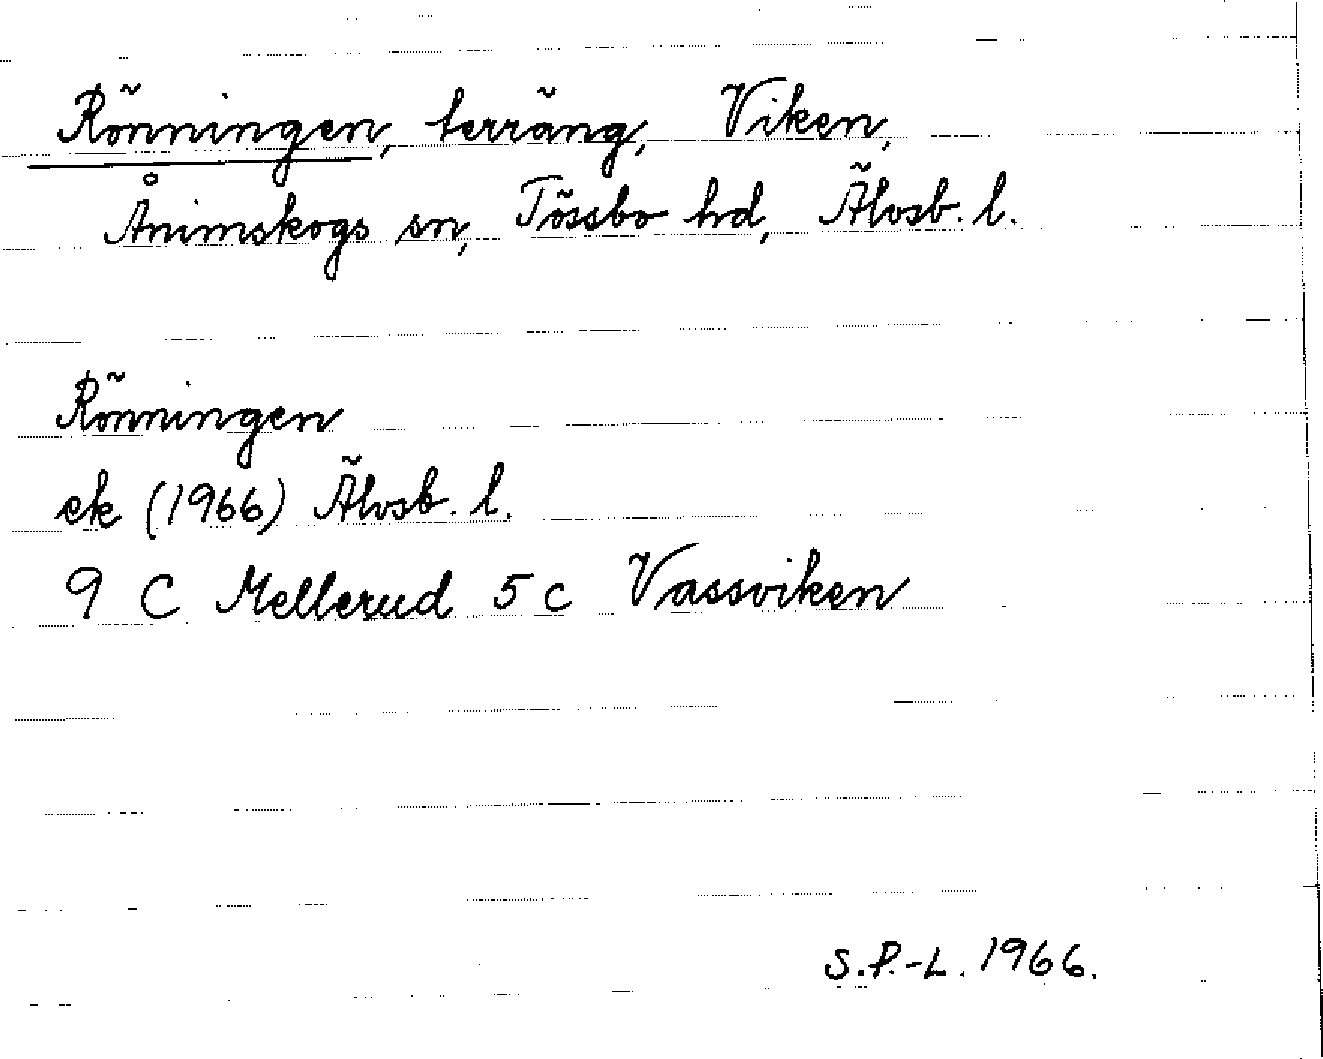 Rönningen, terräng, Viken,
Ånimskogs sn, Tössbo hd, Älvsb. l.
Rönningen
ek (1966) Älvsb. l.
9 C Mellerud 5 c Vassviken
S.P.-L. 1966.